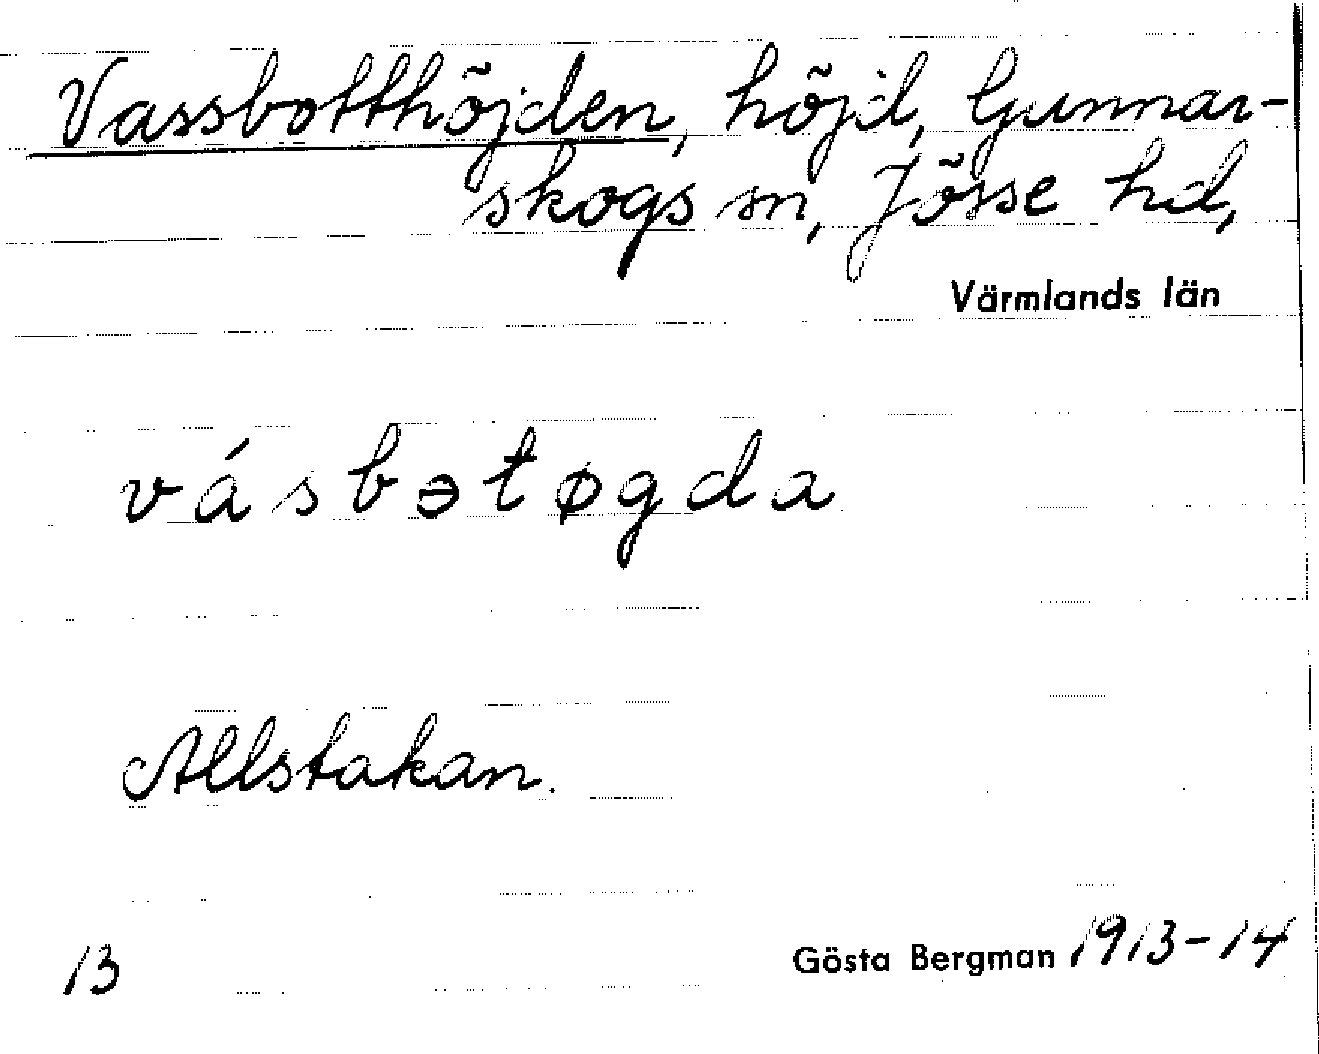 Vassbotthöjden, höjd, Gunnar-
skogs sn, Jösse hd,
Värmlands län
vásbətøgda
Allstakan.
13
Gösta Bergman 1913-14